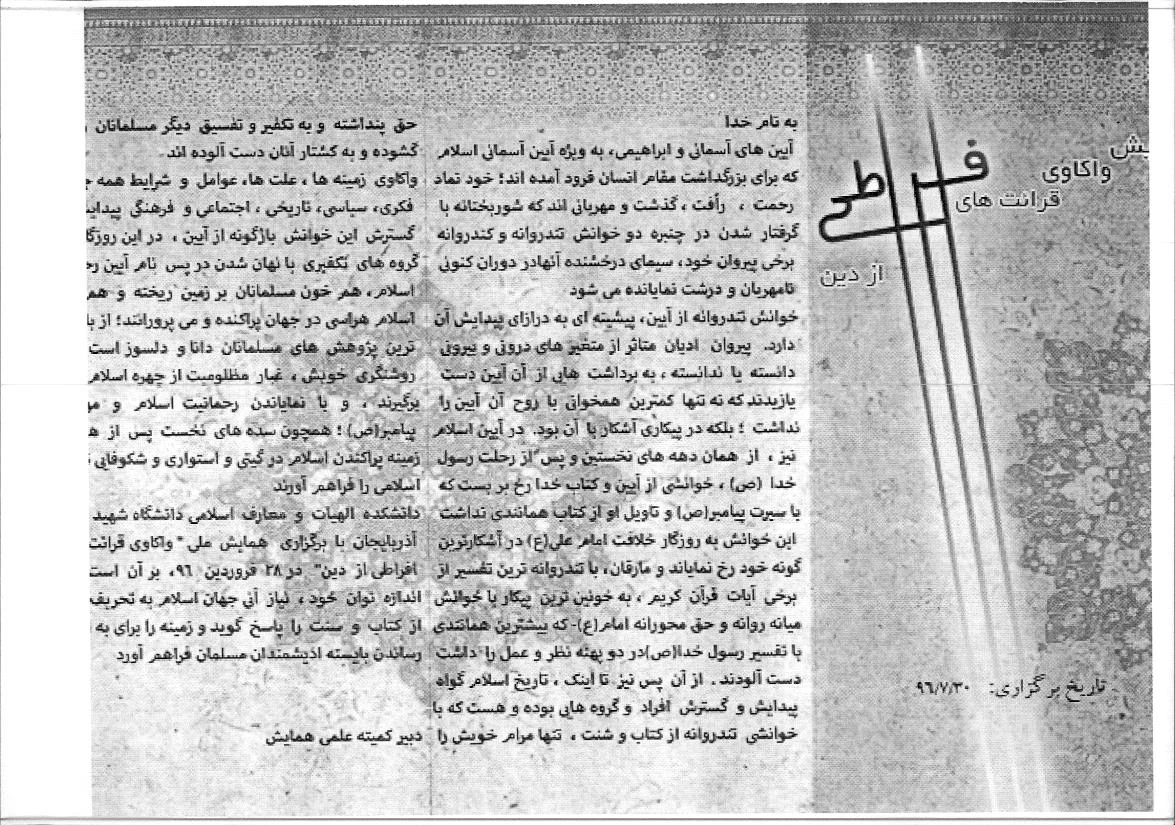 یش
واکاوی
قرائت های
افراطی
از دین
تاریخ برگزاری: ۹۶/۷/۳۰
به نام خدا
آیین های آسمانی و ابراهیمی، به ویژه آیین آسمانی اسلام
که برای بزرگداشت مقام انسان فرود آمده اند؛ خود نماد
رحمت ، رأفت ، گذشت و مهربانی اند که شوربختانه با
گرفتار شدن در چنبره دو خوانش تندروانه و کندروانه
برخی پیروان خود، سیمای درخشنده آنهادر دوران کنونی
نامهربان و درشت نمایانده می شود
خوانش تندروانه از آیین، پیشینه ای به درازای پیدایش آن
دارد. پیروان ادیان متاثر از متغیر های درونی و بیرونی
دانسته یا ندانسته ، به برداشت هایی از آن آیین دست
یازیدند که نه تنها کمترین همخوانی با روح آن آیین را
نداشت ؛ بلکه در پیکاری آشکار با آن بود. در آیین اسلام
نیز ، از همان دهه های نخستین و پس از رحلت رسول
خدا (ص) ، خوانشی از آیین و کتاب خدا رخ بر بست که
با سیرت پیامبر(ص) و تاویل او از کتاب همانندی نداشت
این خوانش به روزگار خلافت امام علی(ع) در آشکارترین
گونه خود رخ نمایاند و مارقان، با تندروانه ترین تفسیر از
برخی آیات قرآن کریم ، به خونین ترین پیکار با خوانش
میانه روانه و حق محورانه امام(ع)- که بیشترین همانندی
با تفسیر رسول خدا(ص)در دو پهنه نظر و عمل را داشت
دست آلودند . از آن پس نیز تا اینک ، تاریخ اسلام گواه
پیدایش و گسترش افراد و گروه هایی بوده و هست که با
خوانشی تندروانه از کتاب و سنت ، تنها مرام خویش را
حق پنداشته و به تکفیر و تفسیق دیگر مسلمانان
گشوده و به کشتار آنان دست آلوده اند.
واکاوی زمینه ها ، علت ها، عوامل و شرایط همه
فکری، سیاسی، تاریخی ، اجتماعی و فرهنگی
گسترش این خوانش باژگونه از آیین ، در این
گروه های تکفیری با نهان شدن در پس نام آیین
اسلام، هم خون مسلمانان بر زمین ریخته و هم
اسلام هراسی در جهان پراکنده و می پرورانند؛ از
ترین پژوهش های مسلمانان دانا و دلسوز است
روشنگری خویش ، غبار مظلومیت از چهره اسلام
برگیرند ، و با نمایاندن رحمانیت اسلام و
پیامبر(ص) ؛ همچون سده های نخست پس از
زمینه پراکندن اسلام در گیتی و استواری و شکوفایی
اسلامی را فراهم آورند
دانشکده الهیات و معارف اسلامی دانشگاه شهید
آذربایجان با برگزاری همایش ملی " واکاوی قرائت
افراطی از دین" در ۲۸ فروردین ۹۶، بر آن است
اندازه توان خود ، نیاز آنی جهان اسلام به تحریف
از کتاب و سنت را پاسخ گوید و زمینه را برای به
رساندن بایسته اندیشمندان مسلمان فراهم آورد
دبیر کمیته علمی همایش